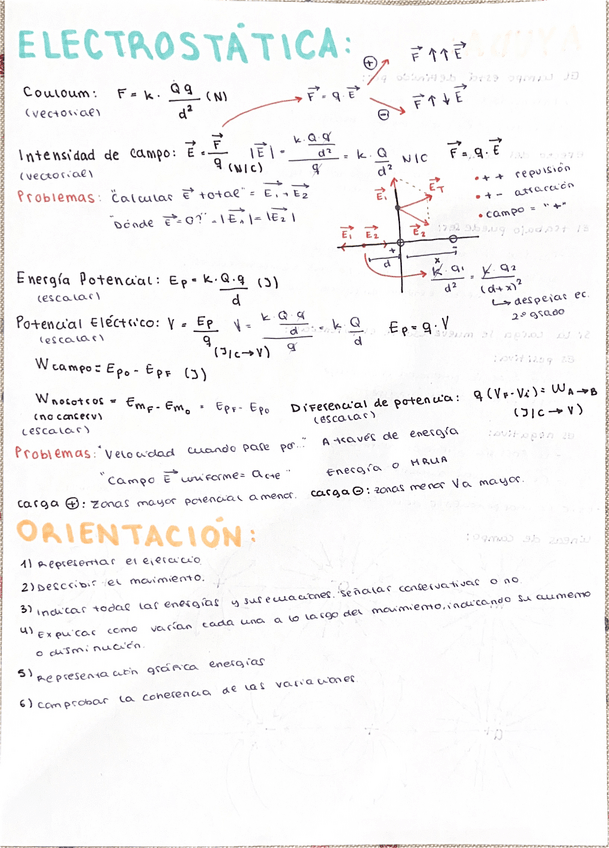 ELECTROSTÁTICA:
⊕ F⃗ ↑↑ E⃗
Couloum: F = k · Q q / d² (N)
(vectorial)
F⃗ = q · E⃗
⊖ F⃗ ↑↓ E⃗
Intensidad de campo: E⃗ = F⃗ / q (N/C) |E⃗| = (k · Q · q / d²) / q = k · Q / d² N/C F⃗ = q · E⃗
(vectorial)
• + + repulsión
• + - atracción
• campo = "+"
Problemas: "Calcular E⃗ total" = E⃗₁ + E⃗₂
"Dónde E⃗ = 0?" = |E⃗₁| = |E⃗₂|
E⃗₁ E⃗T
E⃗₁ E⃗₂ E⃗₂
+ -
d x
k · Q₁ / d² = k · Q₂ / (d+x)²
↳ despejas ec.
2º grado
Energía Potencial: Ep = k · Q · q / d (J)
(escalar)
Potencial Eléctrico: V = Ep / q V = (k · Q · q / d) / q = k · Q / d Ep = q · V
(escalar) (J/C → V)
W campo = Ep₀ - EpF (J)
W nosotros = EmF - Em₀ = EpF - Ep₀
(no conserv)
(escalar)
Diferencial de potencia: q (VF - Vi) = W A→B
(escalar) (J/C → V)
Problemas: "Velocidad cuando pase por..." A través de energía
"Campo E⃗ uniforme = a cte" Energía o MRUA
carga ⊕: zonas mayor potencial a menor. carga ⊖: zonas menor V a mayor.
ORIENTACIÓN:
1) Representar el ejercicio
2) Describir el movimiento.
3) indicar todas las energías y sus ecuaciones. señalar conservativas o no
4) Explicar como varían cada una a lo largo del movimiento, indicando su aumento
o disminución.
5) Representación gráfica energías
6) comprobar la coherencia de las variaciones